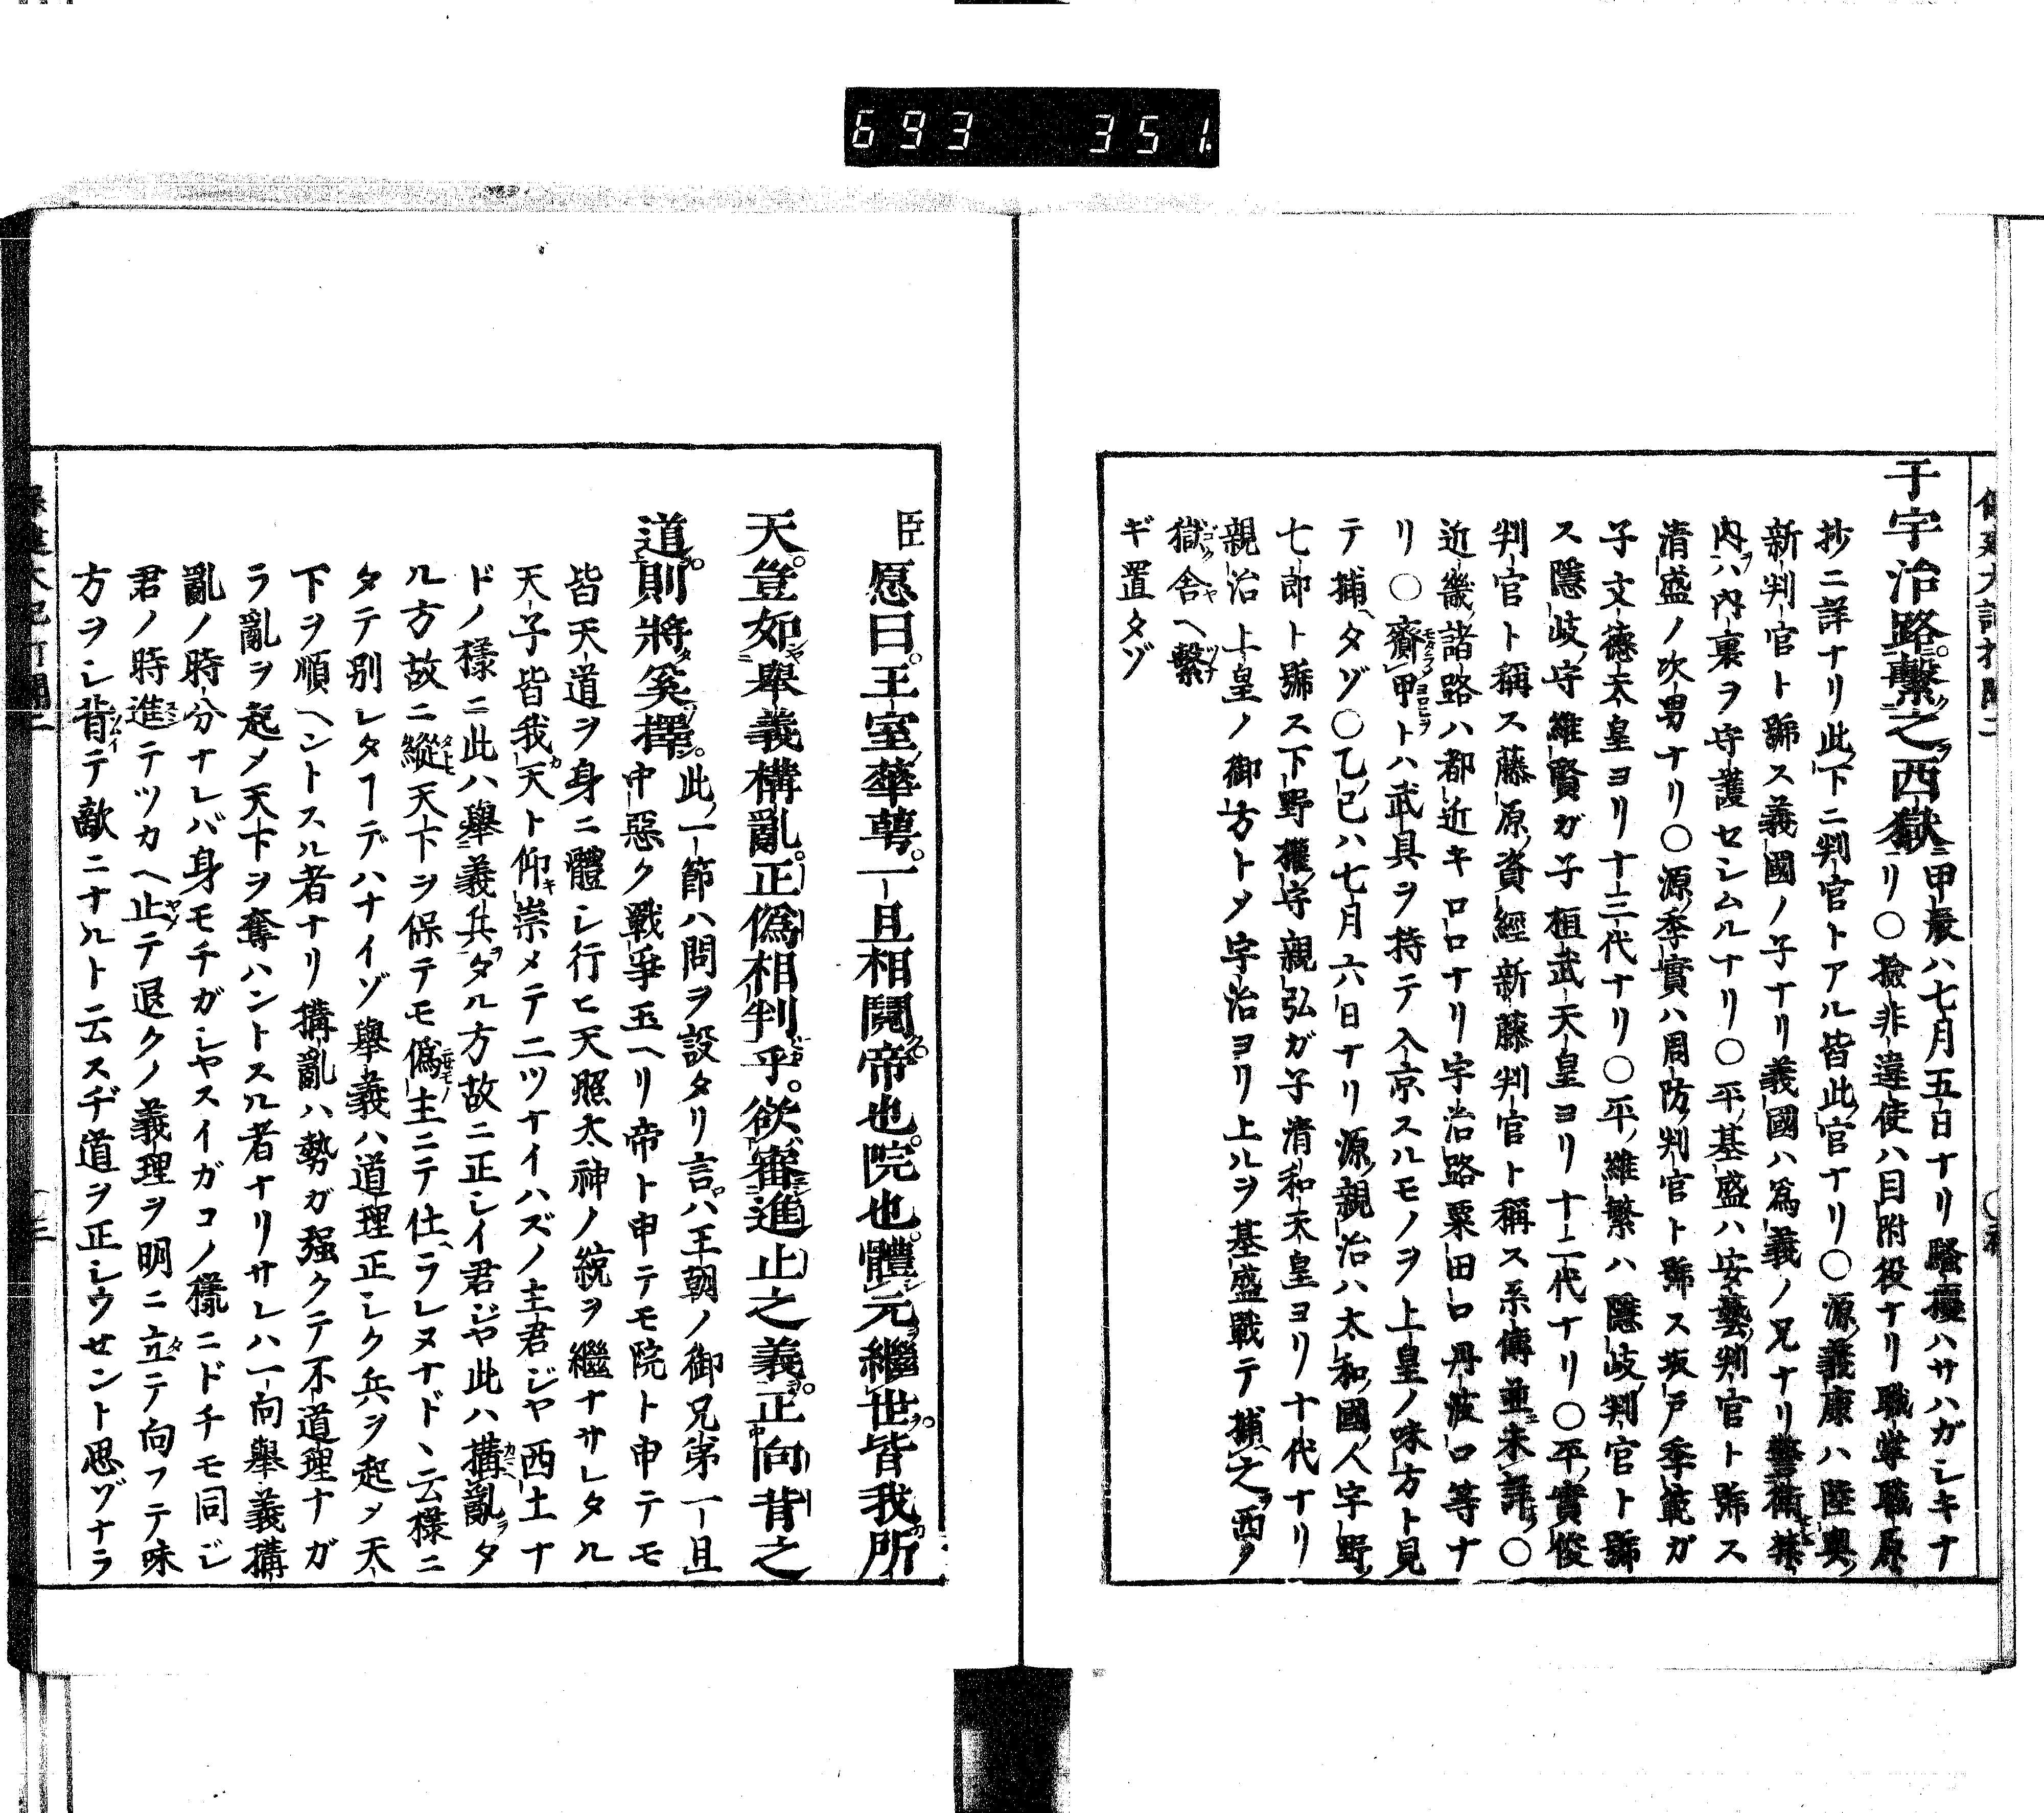 693 351
于宇治路繫之西獄甲辰ハ七月五日ナリ騷擾ハサハガシキナ
リ○撿非違使ハ目附役ナリ職掌職原
抄ニ詳ナリ此下ニ判官トアル皆此官ナリ○源義康ハ陸奥
新判官ト號ス義國ノ子ナリ義國ハ爲義ノ兄ナリ警衛禁
内ハ内裏ヲ守護セシムルナリ○平基盛ハ安藝判官ト號ス
清盛ノ次男ナリ○源季實ハ周防判官ト號ス坂戸季範ガ
子文德天皇ヨリ十三代ナリ○平維繁ハ隱岐判官ト號
ス隱岐守維賢ガ子桓武天皇ヨリ十二代ナリ○平實俊
判官ト稱ス藤原資經新藤判官ト稱ス系傳並未詳○
近畿諸路ハ都近キロロナリ宇治路粟田口丹波口等ナ
リ○齎甲トハ武具ヲ持テ入京スルモノヲ上皇ノ味方ト見
テ捕ヘタゾ○乙巳ハ七月六日ナリ源親治ハ大和國人宇野
七郎ト號ス下野權守親弘ガ子清和天皇ヨリ十代ナリ
親治上皇ノ御方トメ宇治ヨリ上ルヲ基盛戰テ捕之西ノ
獄舍ヘ繫
ギ置タゾ
臣愿曰王室華萼一旦相鬩帝也院也體元繼世皆我所
天豈如擧義構亂正僞相判乎欲審進止之義正向背之
道則將奚擇此一節ハ問ヲ設タリ言ハ王朝ノ御兄弟一旦
中惡ク戰爭玉ヘリ帝ト申テモ院ト申テモ
皆天道ヲ身ニ體シ行ヒ天照太神ノ統ヲ繼ナサレタル
天子皆我天ト仰崇メテ二ツナイハズノ主君ジヤ西土ナ
ドノ樣ニ此ハ擧義兵タル方故ニ正シイ君ジヤ此ハ構亂タ
ル方故ニ縱天下ヲ保テモ僞主ニテ仕ヘラレヌナド、云樣ニ
タテ別レタヿデハナイゾ擧義ハ道理正シク兵ヲ起メ天
下ヲ順ヘントスル者ナリ構亂ハ勢ガ强クテ不道理ナガ
ラ亂ヲ起メ天下ヲ奪ハントスル者ナリサレハ一向擧義構
亂ノ時分ナレバ身モチガシヤスイガコノ樣ニドチモ同ジ
君ノ時進テツカヘ止テ退クノ義理ヲ明ニ立テ向フテ味
方ヲシ背テ敵ニナルト云スヂ道ヲ正シウセント思ヅナラ